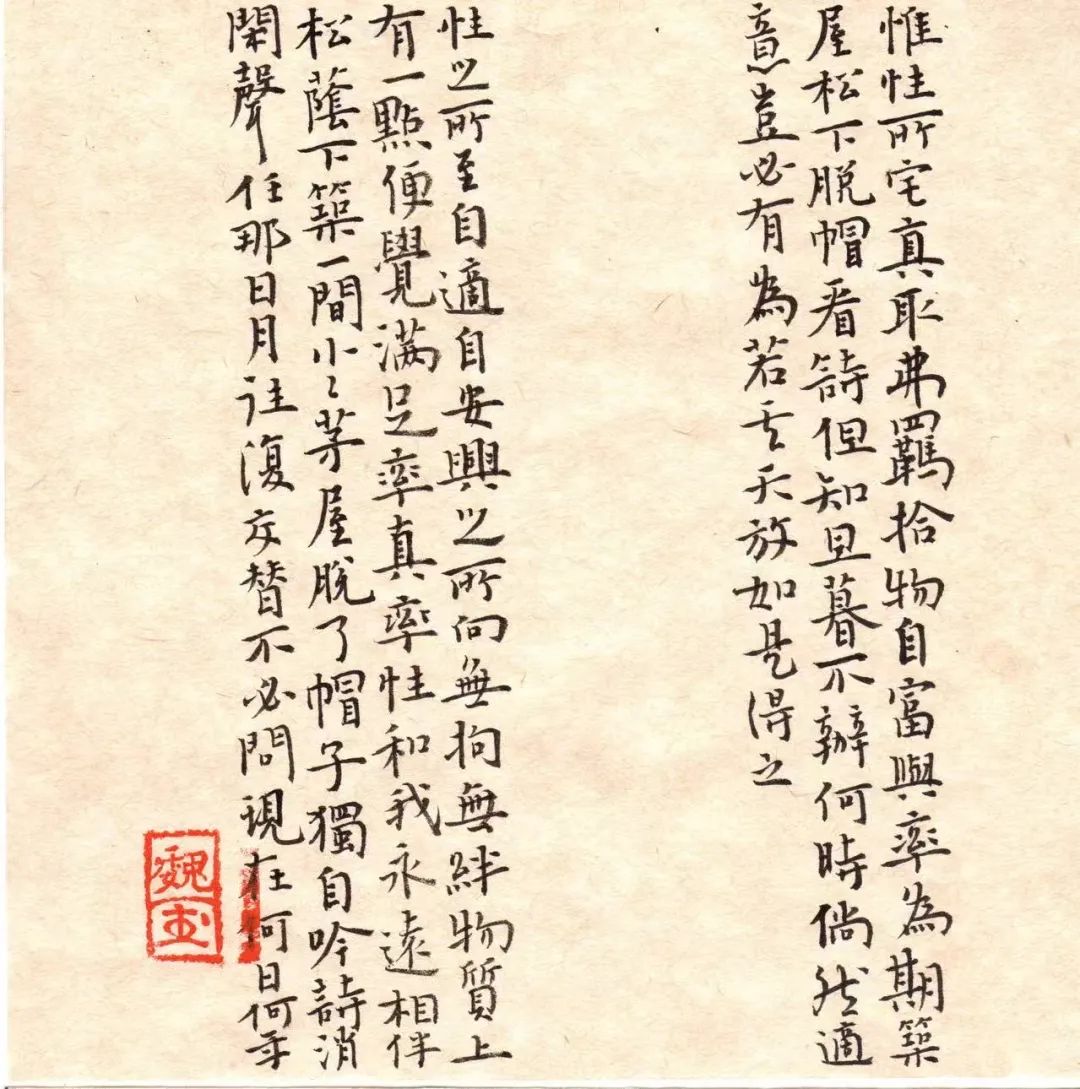 惟性所宅真取弗羈拾物自富與率為期築
屋松下脱帽看詩但知旦暮不辦何時倘然適
意豈必有為若其天放如是得之
性之所至自適自安興之所向無拘無絆物質上
有一點便覺滿足率真率性和我永遠相伴
松蔭下築一間小〻茅屋脱了帽子獨自吟詩消
閑聲任那日月往復交替不必問現在何日何年
魏